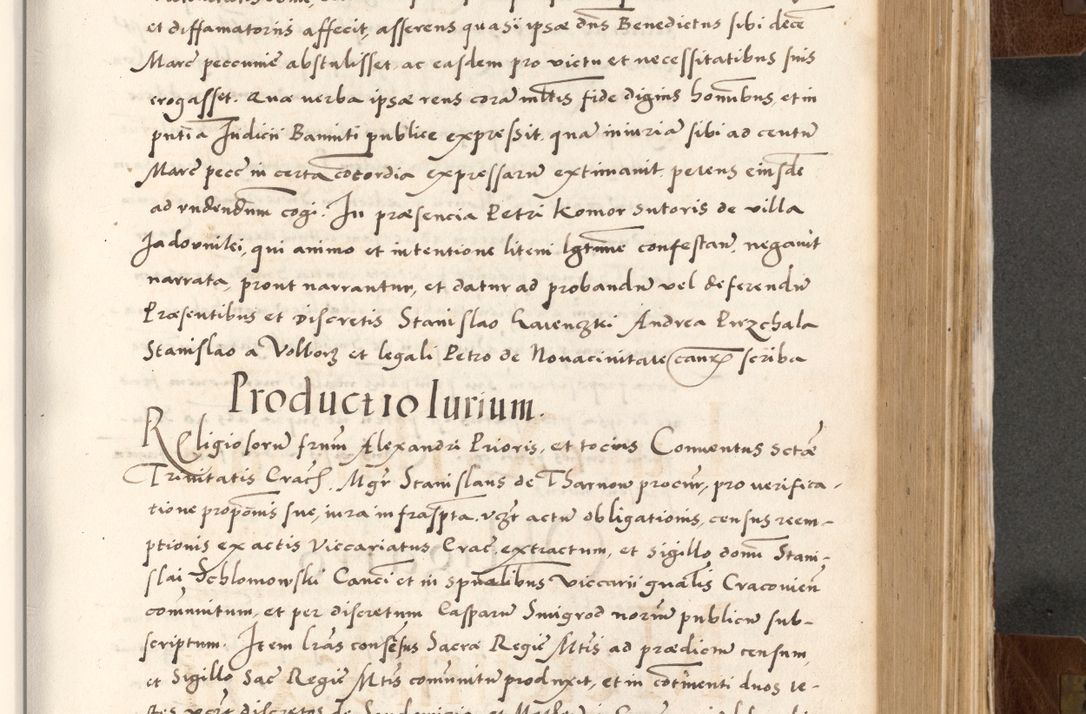 et diffamatoriis affecit, asserens quasi ipsæ dns Benedictus sibi dece
Marc peccunie abstulisset ac easdem pro victu et necessitatibus suis
erogasset. Quæ verba ipsæ reus cora mltis fide dignis homibus, et in
pntia Judicii Baniti publice expressit, qua iniuria sibi ad centu
Marc pecc in certa cocordia expressaru extimauit petens eiusde
ad rndendum cogi. In præsencia Petri Komor Sutoris de villa
Jadovnilei, qui animo et intentione litem lgtime contestan, negauit
narrata, prout narrantur, et datur ad probandu vel deferendu
Præsentibus et Discretis Stanislao Lavenczkei Andrea Przchala
Stanislao a Volborz et legali Petro de Novacivitate caur scriba
Productio Iurium.
Religiosoru frum Alexandri Prioris, et tocius Conuentus Sctæ
Trinitatis Crach. Mgr Stanislaus de Tharnow procur, pro verifica-
tione proponis sue, iura infraspta, vczt actu obligationis, census reem-
ptionis ex actis Viccariatus Crac, extractum, et sigillo domi Stani-
slai Schlomowski Canci et in spualibus Viccarii gnalis Cracovien
comunitum, et per discretum Casparu Smigrod noriu publicu sub-
scriptum. Item lras consesus Sacræ Regie Mtis ad prædictu censum,
et Sigillo Sac Regie Mtis comunitu produxit, et in cotinenti duos te-
stes vczt discretos de